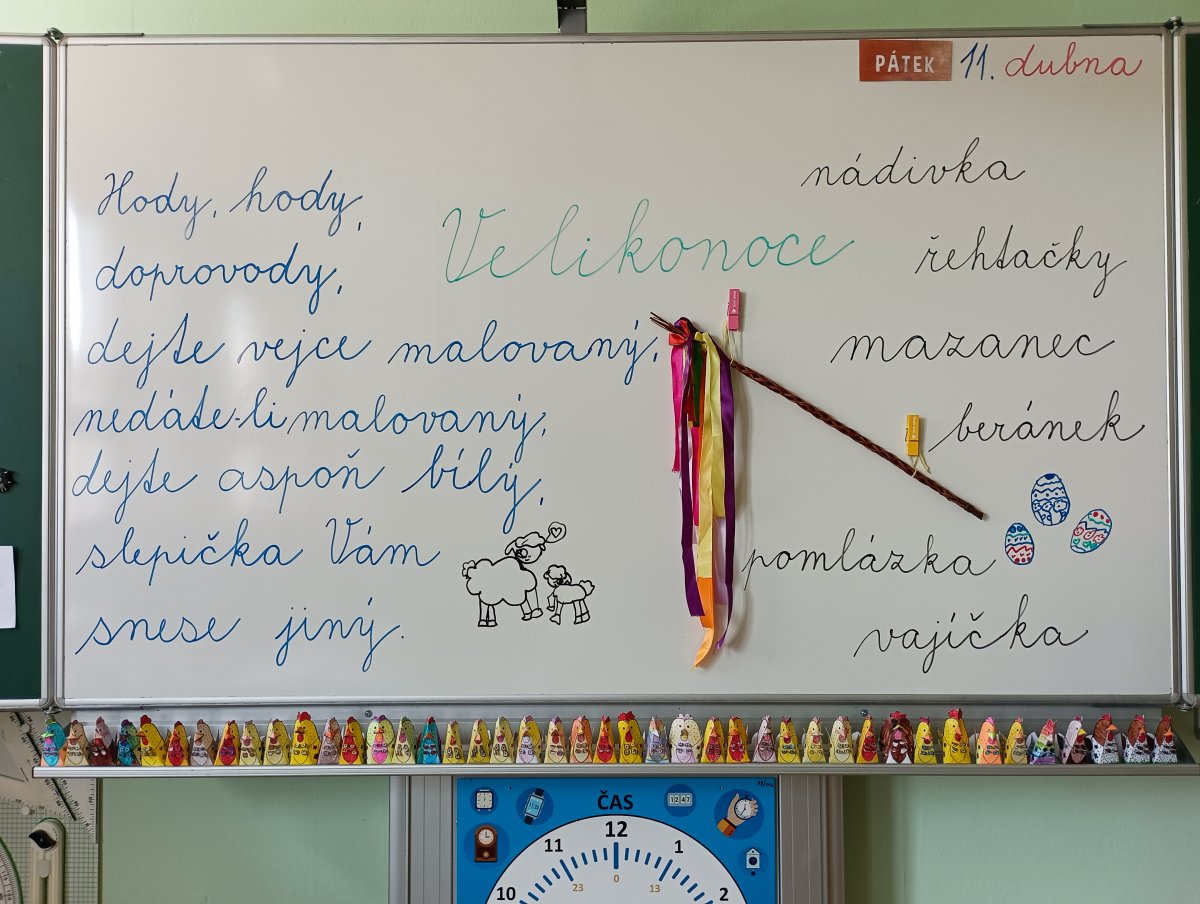 PÁTEK 11. dubna
Hody, hody,
doprovody,
dejte vejce malovaný,
nedáte-li malovaný,
dejte aspoň bílý,
slepička Vám
snese jiný.
Velikonoce
nádivka
řehtačky
mazanec
beránek
pomlázka
vajíčka
ČAS
12:47
12
11
1
10
2
23
0
13